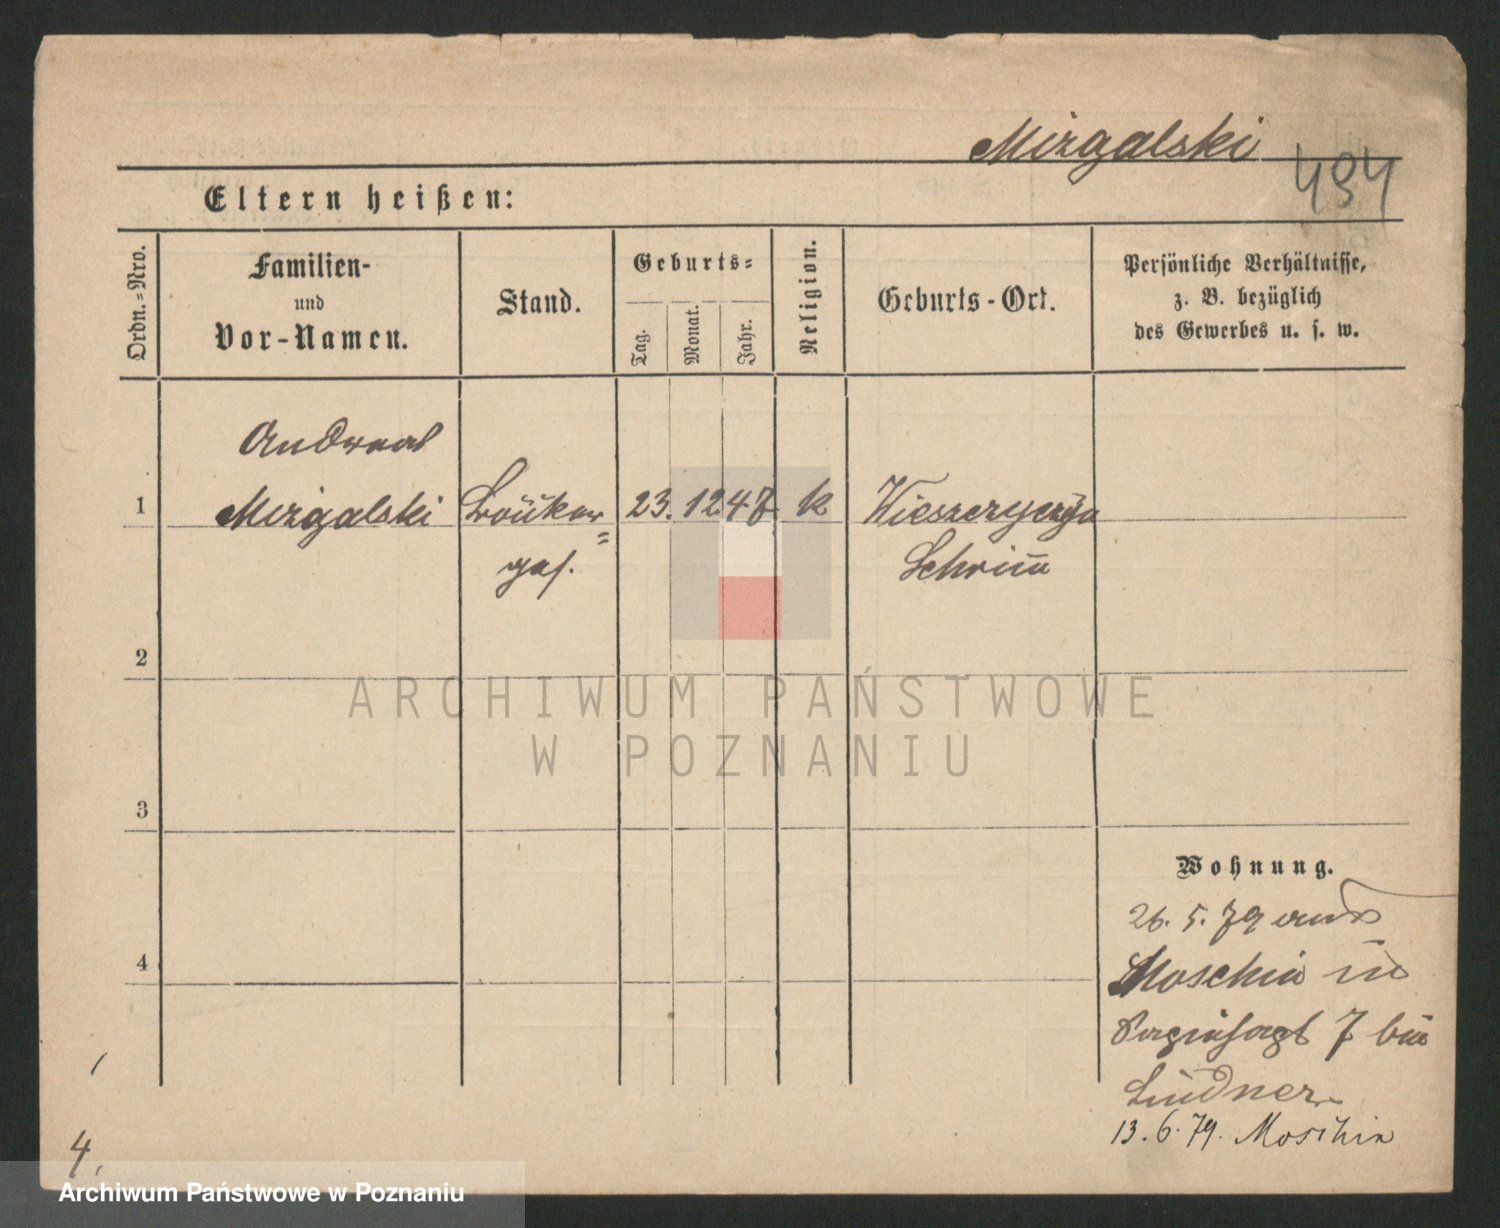 Mizgalski
494
Eltern heißen:
Ordn.=Nro.
Familien-
und
Vor-Namen.
Stand.
Geburts=
Tag.
Monat.
Jahr.
Religion.
Geburts-Ort.
Persönliche Verhältnisse,
z. B. bezüglich
des Gewerbes u. s. w.
Andreas
1 Mizgalski 23. 12 47 k Wieszczyczyn
Schrim
2
3
4
Wohnung.
26. 5. 79 aus
Moschin in
7 bei
Lindner
13. 6. 79. Moschin
4,
ARCHIWUM PAŃSTWOWE
W POZNANIU
Archiwum Państwowe w Poznaniu